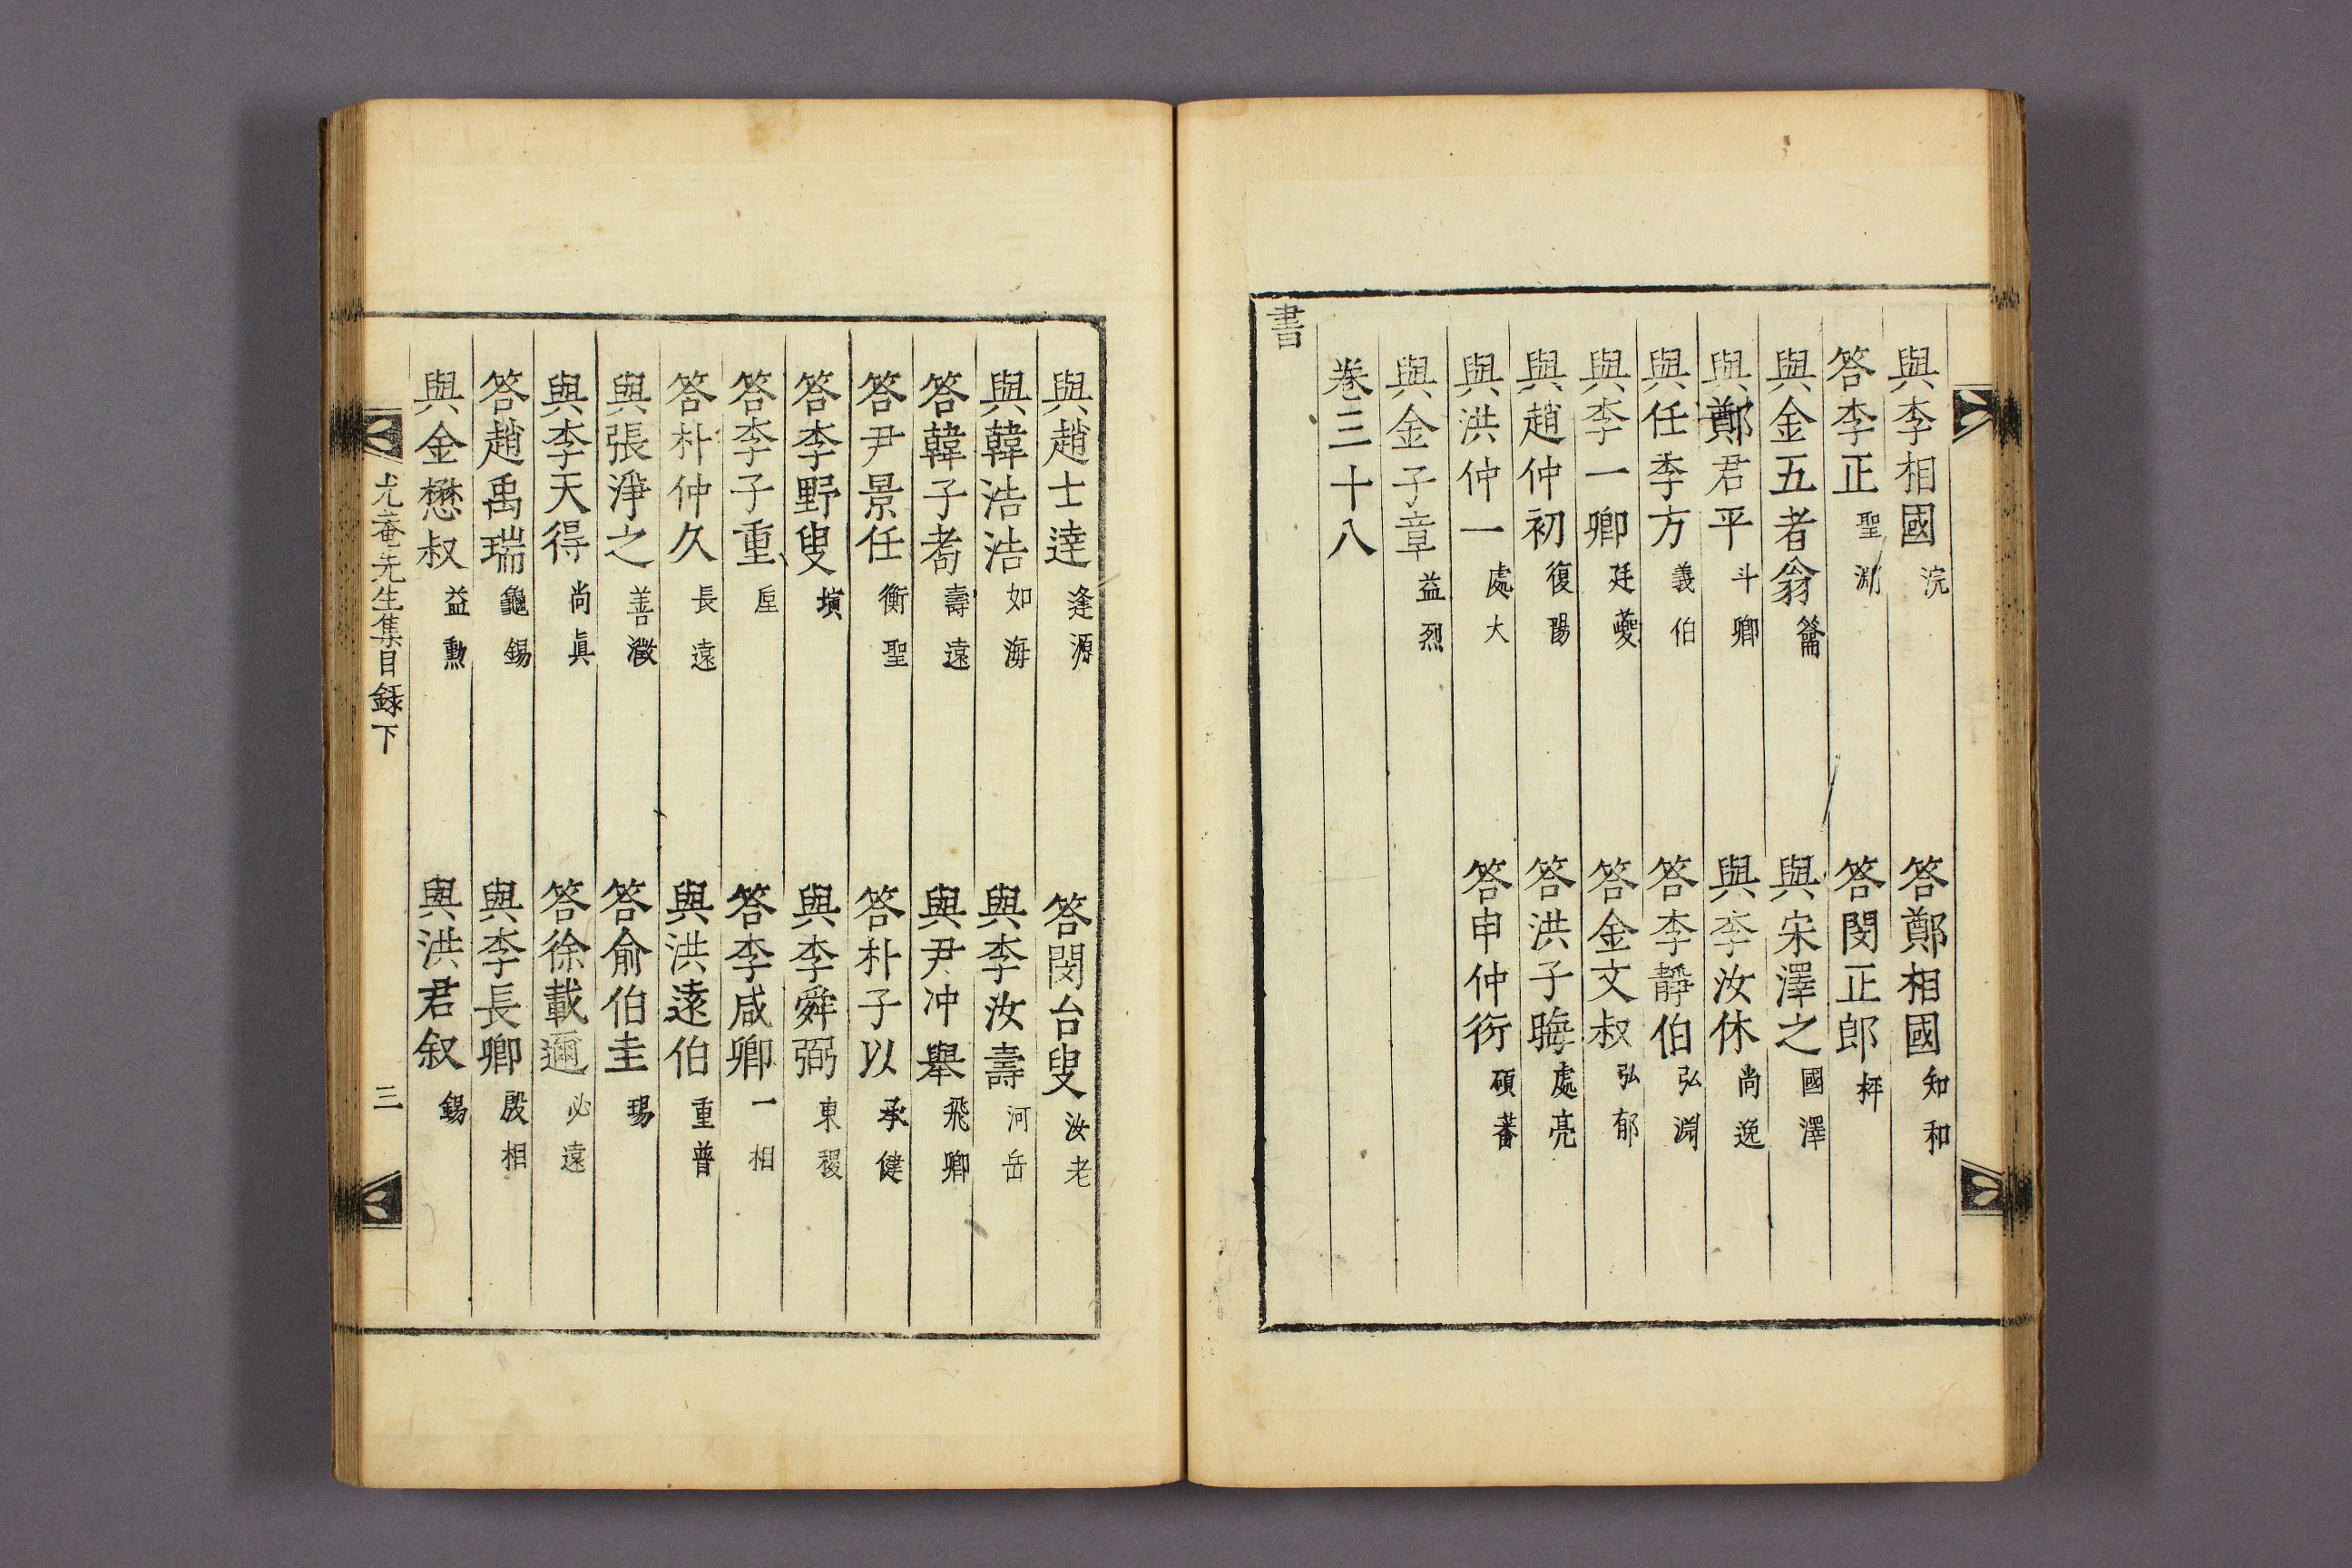 與李相國浣 答鄭相國知和
答李正聖淵 答閔正郎枰
與金五者翁龠 與宋澤之國澤
與鄭君平斗卿 與李汝休尚逸
與任季方義伯 答李靜伯弘淵
與李一卿廷夔 答金文叔弘郁
與趙仲初復陽 答洪子晦處亮
與洪仲一處大 答申仲衍碩蕃
與金子章益烈
卷三十八
書
與趙士達逢源 答閔台叟汝老
與韓浩浩如海 與李汝壽河岳
答韓子耉壽遠 與尹冲舉飛卿
答尹景任衡聖 答朴子以承健
答李野叟塡 與李舜弼東稷
答李子重垕 答李咸卿一相
答朴仲久長遠 與洪遠伯重普
與張淨之善瀓 答俞伯圭瑒
與李天得尚眞 答徐載邇必遠
答趙禹瑞龜錫 與李長卿殷相
與金懋叔益勳 與洪君叙錫
尤菴先生集目錄下 三